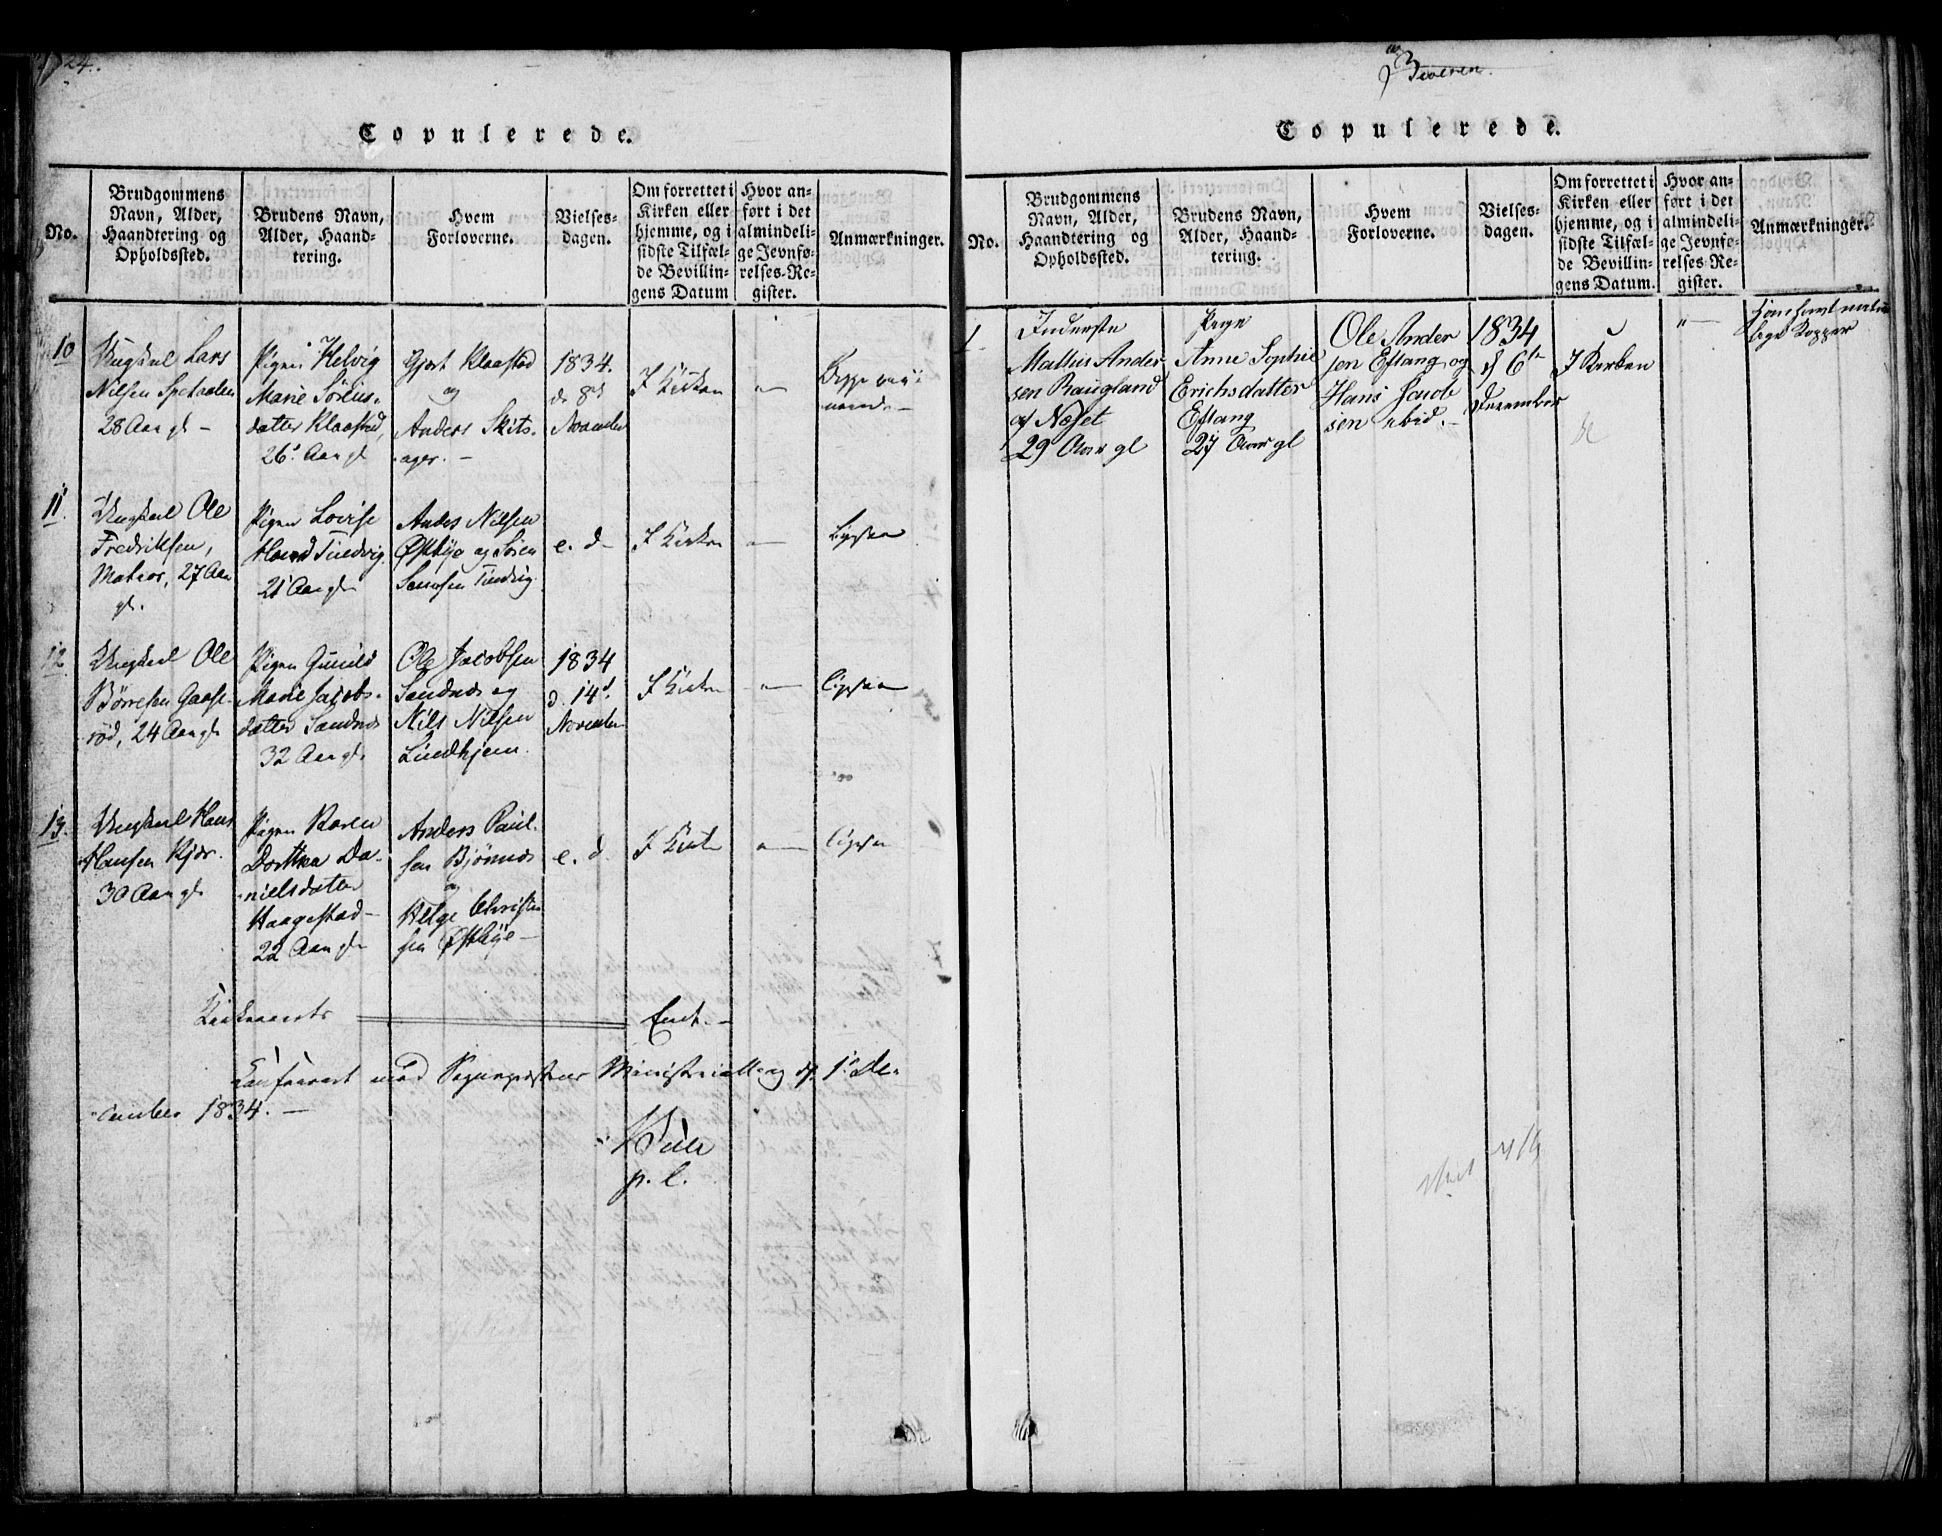 24.
Copulerede.
No.
Brudgommens
Navn, Alder,
Haandtering og
Opholdssted.
Brudens Navn,
Alder, Haand-
tering.
Hvem
Forloverne.
Vielses-
dagen.
Om forrettet i
Kirken eller
hjemme, og i
sidste Tilfæl-
de Bevillin-
gens Datum
Hvor an-
ført i det
almindeli-
ge Jevnfø-
relses-Re-
gister.
Anmærkninger.
10
Ungkarl Lars
Nilsen
28 Aar gl
Pigen Helvig
Marie Sørens-
datter Klaastad,
26 Aar gl
Gjert Klaastad
og
Anders Skits-
ager.
1834.
d. 8d
November
I Kirken
11.
Ungkarl Ole
Fredriksen,
Matros, 27 Aar
gl.
Pigen Lovise
Tindvig
21 Aar gl
Anders Nilsen
Østbye og Søren
Tindvig
e. d
I Kirken
12
Ungkarl Ole
Børresen Gaase-
rød, 24 Aar gl
Pigen Gunild
Marie Jacobs-
datter Sandnes
32 Aar gl.
Ole Jacobsen
Sandnes og
Nils Nilsen
Lindhjem.
1834
d. 14d.
November
I Kirken
13.
Ungkarl Hans
Hansen Kjær.
30 Aar gl
Pigen Karen
Dorthea Da-
nielsdatter
Haagestad
22 Aar gl
Anders Paul-
sen Bjønnes
og
Helge Christen
sen Østbye
e. d.
I Kirken
Kirkeaarets Ende.
Confereret med Sognepræstens Ministerialbog d. 1 De-
cember 1834.
p. l.
Copulerede.
No.
Brudgommens
Navn, Alder,
Haandtering og
Opholdssted.
Brudens Navn,
Alder, Haand-
tering.
Hvem
Forloverne.
Vielses-
dagen.
Om forrettet i
Kirken eller
hjemme, og i
sidste Tilfæl-
de Bevillin-
gens Datum.
Hvor an-
ført i det
almindeli-
ge Jevnfø-
relses-Re-
gister.
Anmærkninger.
1
Inderste
Mathis Ander
sen Raugland
af Næset
29 Aar gl
Pige
Anne Sophie
Erichsdatter
Eftang
27 Aar gl
Ole Ander
sen Eftang og
Hans Jacob
sen ibid.
1834
d 6te
December
I Kirken
Han havt natur
lige Kopper